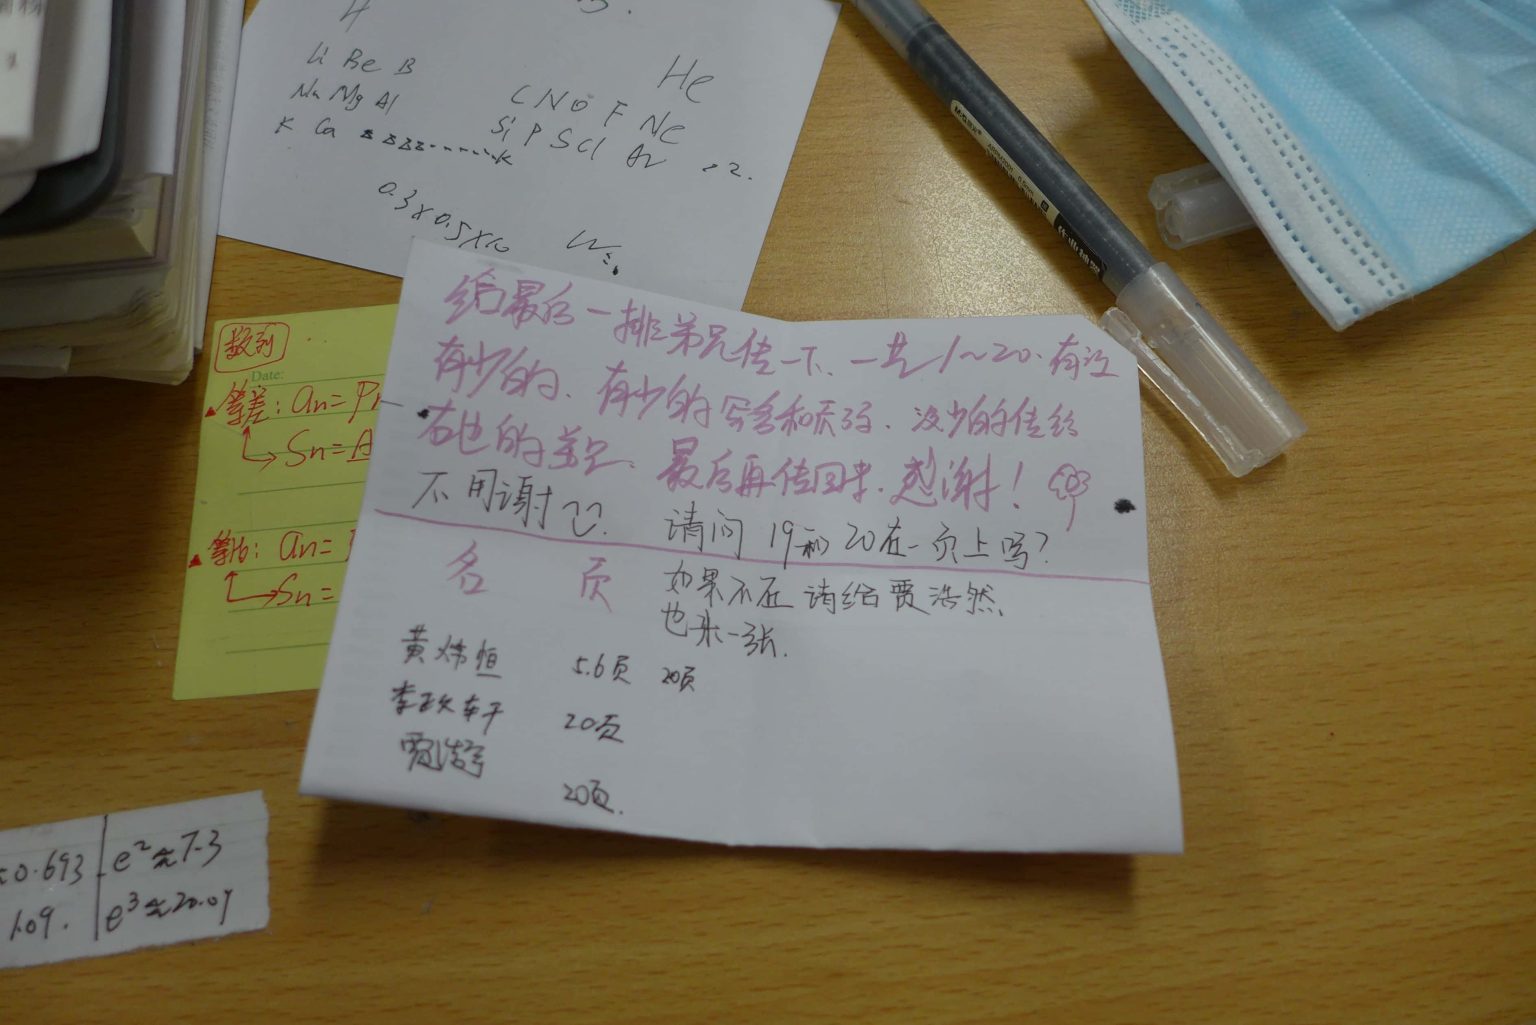 H
Li Be B
He
Na Mg Al
C N O F Ne
K Ca
Si P S Cl Ar
0.3×0.5×10
给最后一排弟兄传一下、一共1~20.有没
有少的、有少的写名和页码、没少的传给
右边的弟兄、最后再传回来.感谢!
不用谢
请问19和20在一页上吗?
名 页
如果不在请给贾浩然
也来一张.
黄炜恒 5.6页 20页
20页
20页.
数列
Date:
等差: an=
Sn=A
等比: an=
Sn=
0.693 e²≈7.3
1.09. e³≈20.09
M&G